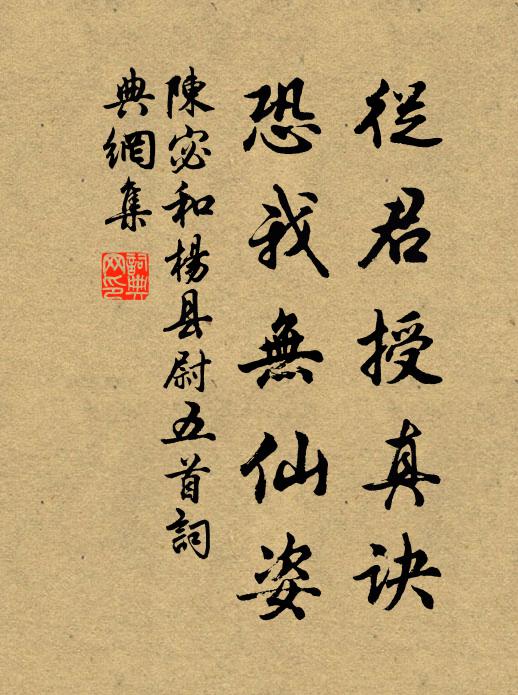 從君授真訣
恐我無仙姿
陳宓和楊县尉五首詞
典網集
詞典网印